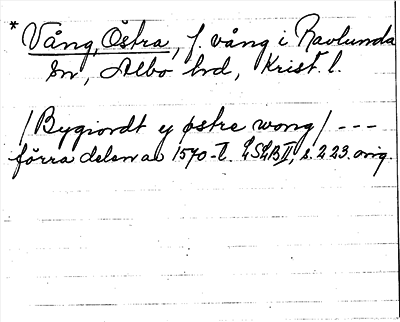 * Vång, Östra, f. vång i Ravlunda
sn, Albo hd, Krist. l.
/Bygiordt y østre wong/ ---
förra delen av 1570-t. LSLB II, s. 223. orig.